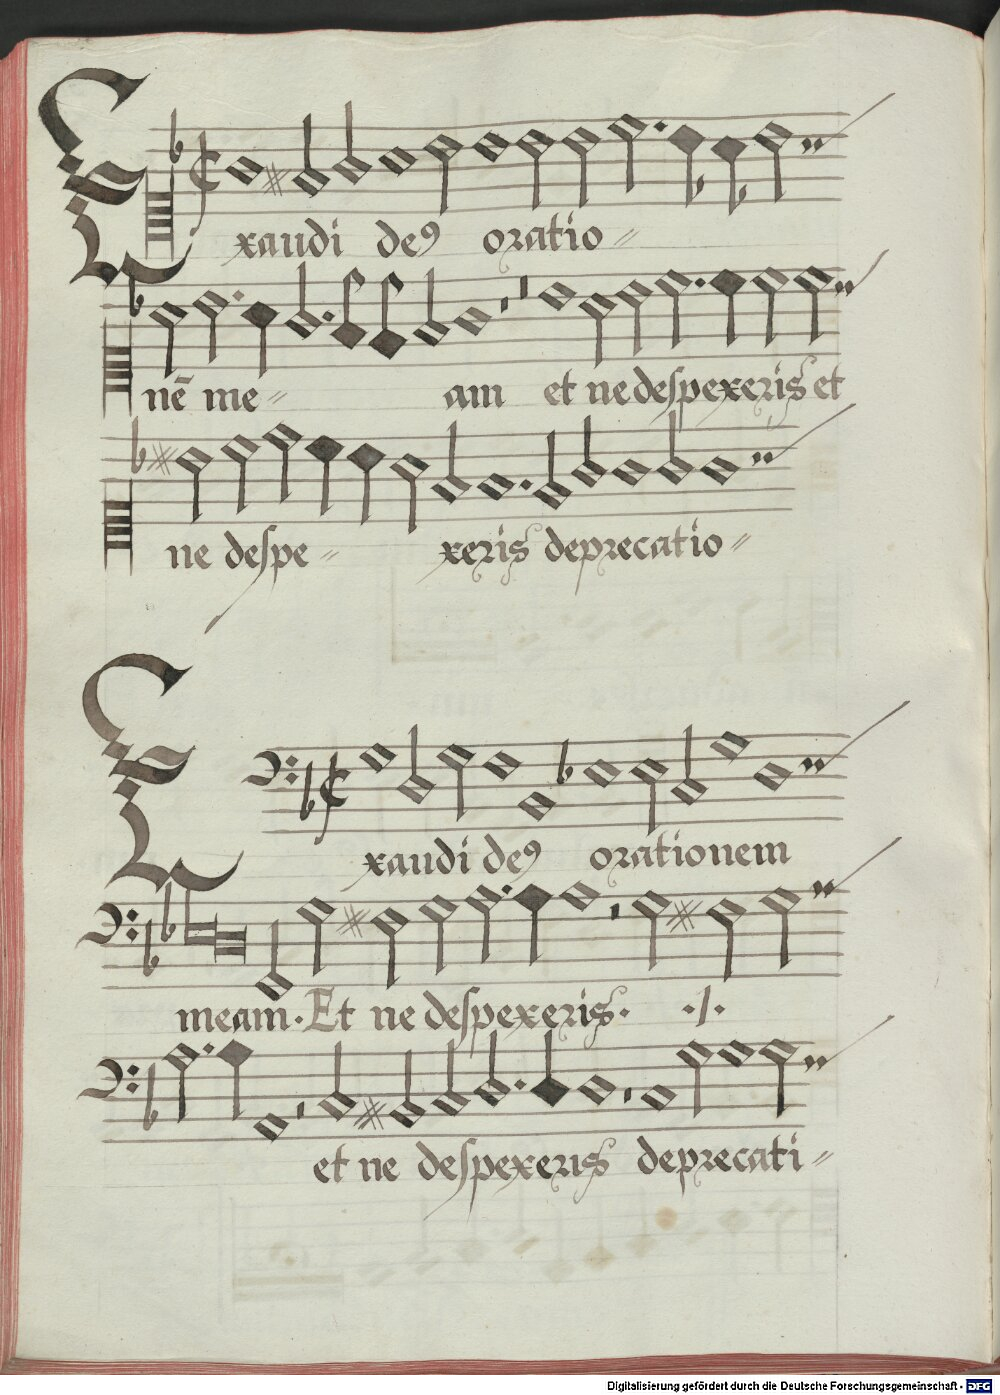 Exaudi de9 oratio〃
nē me〃 am et ne despexeris et
ne despe〃 xeris deprecatio〃
Exaudi de9 orationem
meam. Et ne despexeris. ./.
et ne despexeris deprecati〃
Digitalisierung gefördert durch die Deutsche Forschungsgemeinschaft - DFG